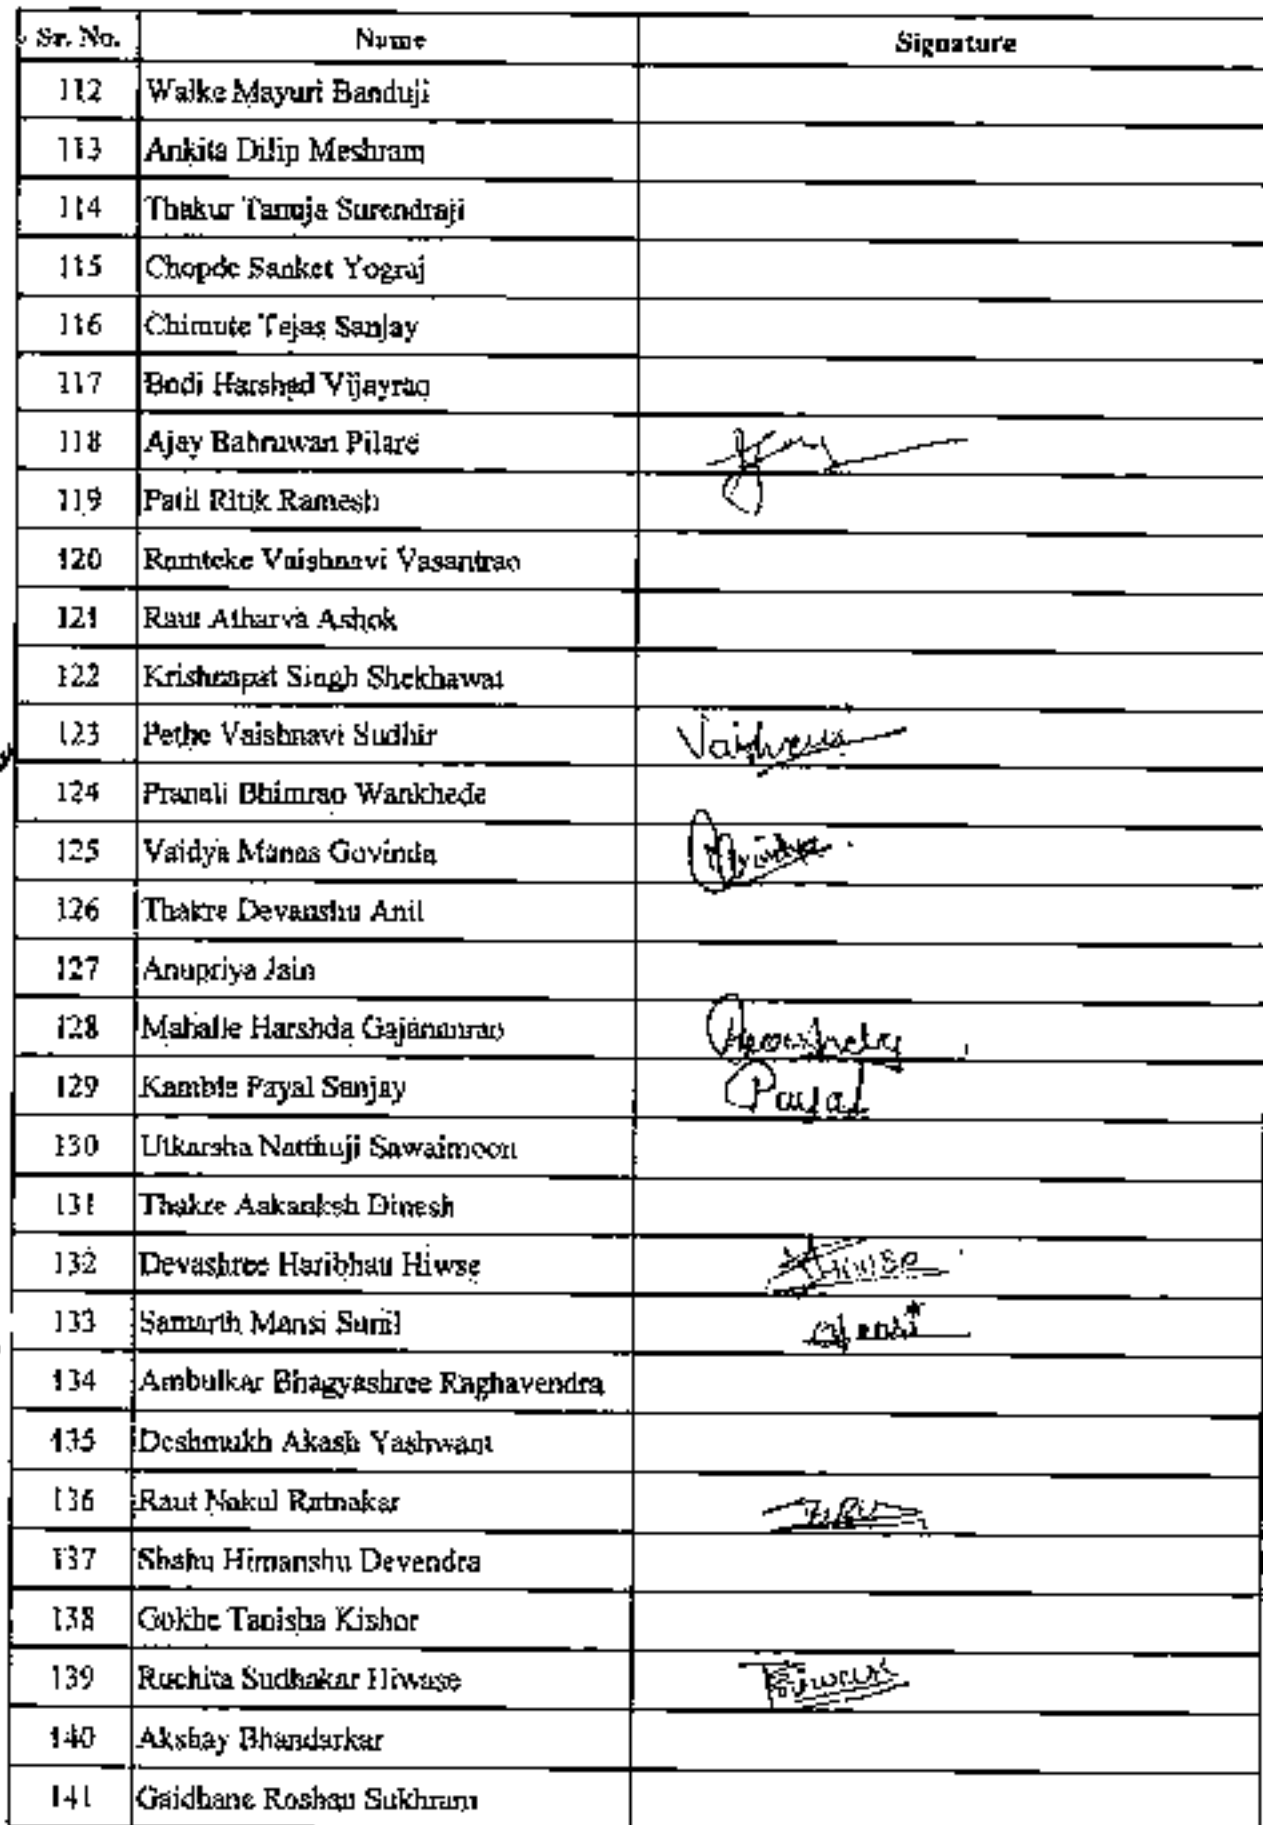 Sr. No. Name Signature
112 Walke Mayuri Banduji
113 Ankita Dilip Meshram
114 Thakur Tanuja Surendraji
115 Chopde Sanket Yograj
116 Chimute Tejas Sanjay
117 Bodi Harshad Vijayrao
118 Ajay Bahruwan Pilare
119 Patil Ritik Ramesh
120 Ramteke Vaishnavi Vasantrao
121 Raut Atharva Ashok
122 Krishnapat Singh Shekhawat
123 Pethe Vaishnavi Sudhir Vaishnavi
124 Pranali Bhimrao Wankhede
125 Vaidya Manas Govinda
126 Thakre Devanshu Anil
127 Anupriya Jain
128 Mahalle Harshda Gajananrao
129 Kamble Payal Sanjay Payal
130 Utkarsha Natthuji Sawaimoon
131 Thakre Aakanksh Dinesh
132 Devashree Haribhau Hiwse Hiwse
133 Samarth Mansi Sunil Mansi
134 Ambulkar Bhagyashree Raghavendra
135 Deshmukh Akash Yashwant
136 Raut Nakul Ratnakar
137 Shahu Himanshu Devendra
138 Gokhe Tanisha Kishor
139 Ruchita Sudhakar Hiwase
140 Akshay Bhandarkar
141 Gaidhane Roshan Sukhram